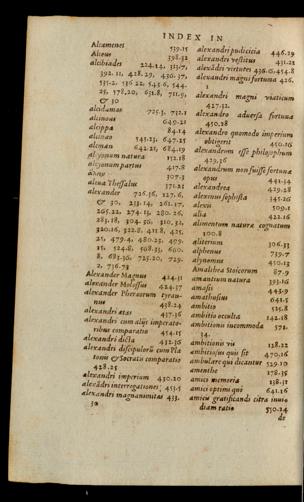 INDEX IN
Alcamenes 539.15
Alceus 398.32
alcibiades 224.14, 313.7,
392.11, 428.29, 430.37,
535.2, 536.22, 543.6, 544.
25, 578.20, 631.8, 711.9,
& 30
alcidamas 725.3, 732.1
alcinous 649.21
alcippa 84.14
alcmeon 642.21, 684.19
alcyonum natura 152.18
alcyonum partus 417.8
307.3
alexa Thessalus 371.21
alexander 726.36, 227.6,
& 30, 233.14, 261.17,
265.22, 274.13, 280.26,
283.18, 304.36, 310.32,
320.16, 322.8, 411.8, 425.
25, 479.4, 480.23, 499.
8, 683.36, 725.20, 729.
2, 736.73
Alexander Magnus 424.31
Alexander Molossus 424.37
Alexander Pheraorum tyran-
nus 438.24
alexandri ætas 437.36
alexandri cum alijs imperato-
ribus comparatio 454.15
alexandri dicta 432.36
alexandri discipulorū cum Pla
tonis & Socratis comparatio
428.25
alexandri imperium 430.20
alexādri interrogationes 453.5
alexandri magnanimitas 433.
30
alexandri pudicitia 446.29
alexandri vestitus 431.21
alexādri virtutes 436.6, 454.8
alexandri magni fortuna 426.
1
alexandri magni viaticum
427.32.
alexandro aduersa fortuna
450.28
alexandro quomodo imperium
obtigerit 450.16
alexandrum esse philosophum
429.36
alexandrum non fuisse fortunæ
opus 441.34
alexandrea 429.28
alexinus sophista 345.26
alexis 509.1
alia 422.16
alimentum naturæ cognatum
100.8
aliterium 306.33
alphenus 739.7
alynomus 450.13
Amalthea Stoicorum 87.9
amantium natura 393.16
amasis 443.9
amathusius 641.5
ambitio 525.8
ambitio occulta 142.18
ambitionis incommoda 571.
34.
ambitionis vis 138.22
ambitiosus quis sit 470.16
ambulare qui dicantur 529.10
amenthe 278.35
amici memoria 138.31
amici optimi qui 641.16
amicis gratificandi citra iniu
diam ratio 530.14
de